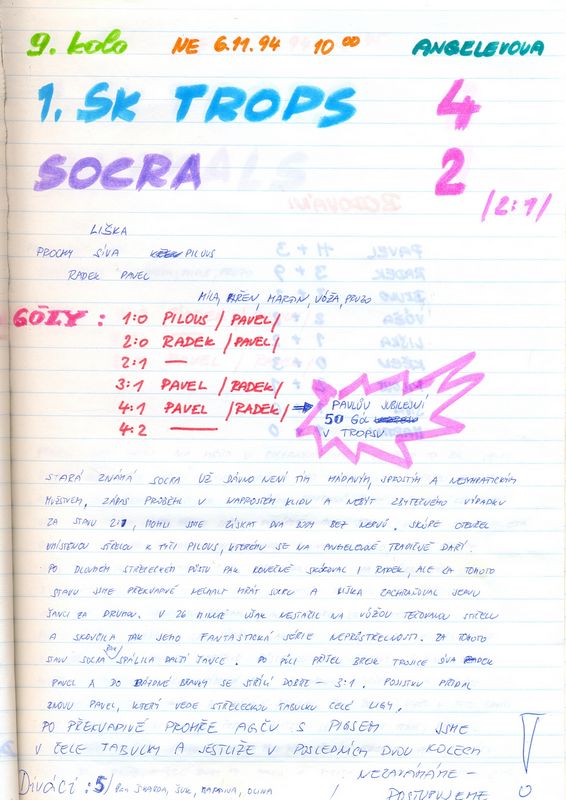 9. kolo NE 6.11.94 10 00 ANGELEVOVA
1. SK TROPS 4
SOCRA 2 /2:1/
LIŠKA
PROCHY SÍVA PILOUS
RADEK PAVEL
MÍLA, KŘEN, MARTIN, VÓŽA, PRUŽO
GÓLY : 1:0 PILOUS /PAVEL/
2:0 RADEK /PAVEL/
2:1 —
3:1 PAVEL /RADEK/
4:1 PAVEL /RADEK/ ⇒ PAVLŮV JUBILEJNÍ
50 GÓL
V TROPSU
4:2 —
STARÁ ZNÁMÁ SOCRA UŽ DÁVNO NENÍ TÍM HÁDAVÝM, SPROSTÝM A NESYMPATICKÝM
MUŽSTVEM, ZÁPAS PROBĚHL V NAPROSTÉM KLIDU A NEBÝT ZBYTEČNÉHO VÝPADKU
ZA STAVU 2:1, MOHLI JSME ZÍSKAT DVA BODY BEZ NERVŮ. SKÓRE OTEVŘEL
UMÍSTĚNOU STŘELOU K TYČI PILOUS, KTERÉMU SE NA ANGELOVCE TRADIČNĚ DAŘÍ.
PO DLOUHÉM STŘELECKÉM PŮSTU PAK KONEČNĚ SKÓROVAL I RADEK, ALE ZA TOHOTO
STAVU JSME PŘEKVAPIVĚ NECHALI HRÁT SOCRU A LIŠKA ZACHRAŇOVAL JEDNU
ŠANCI ZA DRUHOU. V 26 MINUTĚ VŠAK NESTAČIL NA VÓŽOU TEČOVANOU STŘELU
A SKONČILA TAK JEHO FANTASTICKÁ SÉRIE NEPRŮSTŘELNOSTI. ZA TOHOTO
STAVU SOCRA SPÁLILA DALŠÍ ŠANCE. PO PŮLI PŘIŠEL BREJK TROJICE SÍVA RADEK
PAVEL A DO PRÁZDNÉ BRANKY SE STŘÍLÍ DOBŘE - 3:1. POJISTKU PŘIDAL
ZNOVU PAVEL, KTERÝ VEDE STŘELECKOU TABULKU CELÉ LIGY.
PO PŘEKVAPIVÉ PROHŘE AGČU S PIGSEM JSME
V ČELE TABULKY A JESTLIŽE V POSLEDNÍCH DVOU KOLECH
NEZAVÁHÁME -
POSTUPUJEME !
Diváci : 5/ ŠKARDA, ŠUK, OLINA /